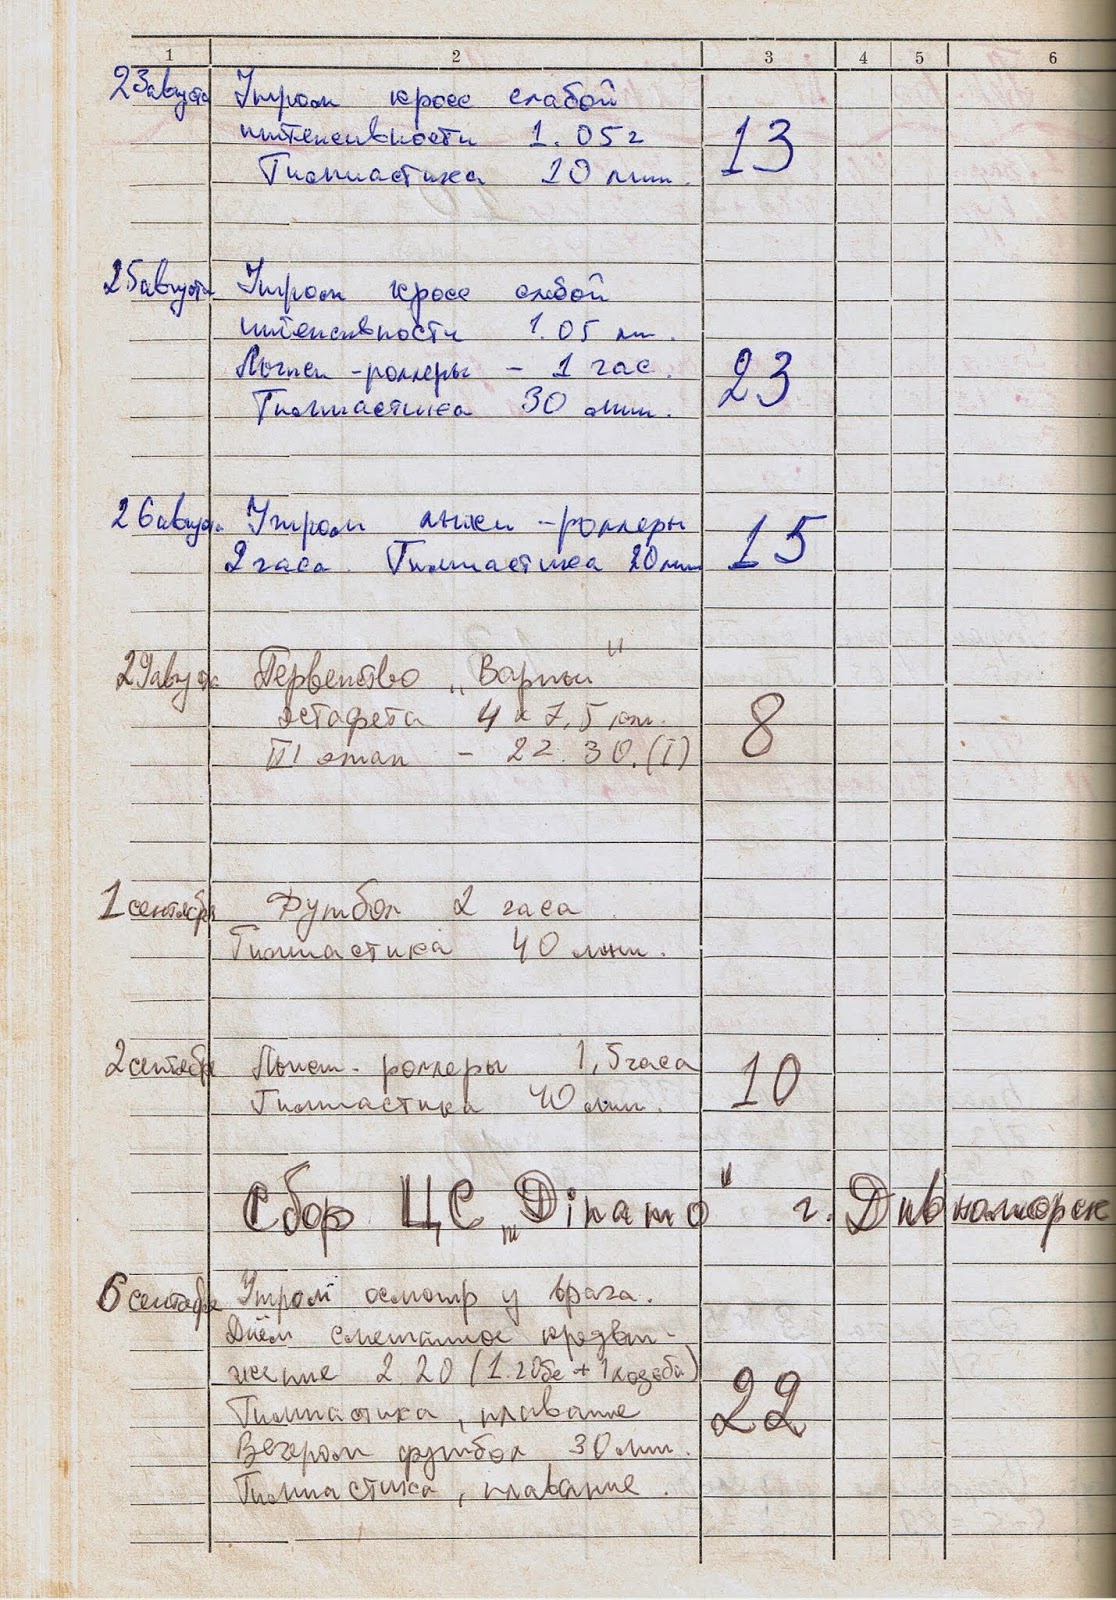 1 2 3 4 5 6
23 августа Утром кросс слабой
интенсивности 1.05 г
Гимнастика 10 мин. 13
25 августа Утром кросс слабой
интенсивности 1.05 мин.
Лыжи-роллеры - 1 час.
Гимнастика 30 мин. 23
26 августа Утром лыжи-роллеры
2 часа. Гимнастика 20 мин 15
29 августа Первенство „Варны"
эстафета 4 х 7,5 км.
III этап - 22.30. (I) 8
1 сентября Футбол 2 часа
Гимнастика 40 мин.
2 сентября Лыжи-роллеры 1,5 часа
Гимнастика 40 мин. 10
Сбор ЦС „Dinamo" г. Дивноморск
6 сентября Утром осмотр у врача.
Днём смешанное продви-
жение 2.20 (1.20бе + 1 ходьба)
Гимнастика, плавание 22
Вечером футбол 30 мин.
Гимнастика, плавание.